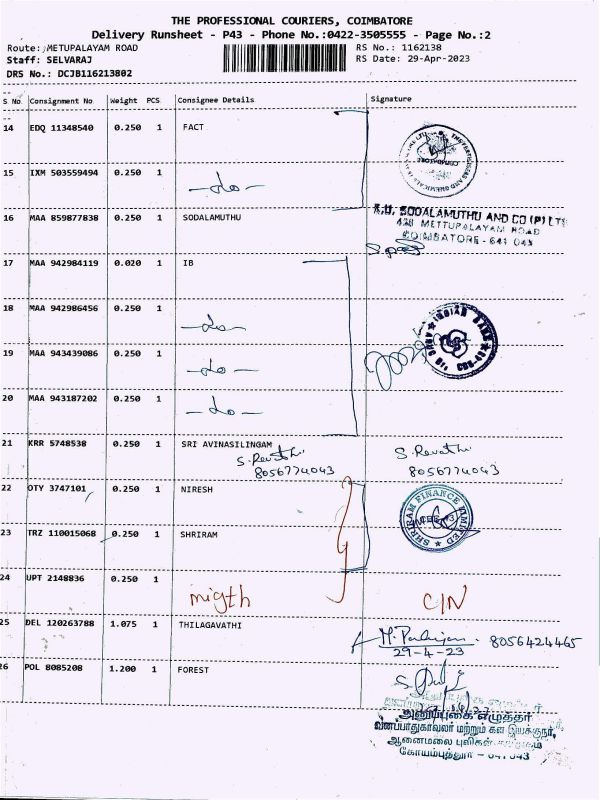 THE PROFESSIONAL COURIERS, COIMBATORE
Delivery Runsheet - P43 - Phone No.:0422-3505555 - Page No.:2
Route: METUPALAYAM ROAD
RS No.: 1162138
Staff: SELVARAJ
RS Date: 29-Apr-2023
DRS No.: DCJB116213802
S No Consignment No Weight PCS Consignee Details Signature
14 EDQ 11348540 0.250 1 FACT
15 IXM 503559494 0.250 1 -do-
16 MAA 859877838 0.250 1 SODALAMUTHU
SODALAMUTHU AND CO (P) LTD
METTUPALAYAM ROAD
COIMBATORE - 641 043
17 MAA 942984119 0.020 1 IB
18 MAA 942986456 0.250 1 -do-
INDIAN BANK
19 MAA 943439086 0.250 1 -do-
20 MAA 943187202 0.250 1 -do-
21 KRR 5748538 0.250 1 SRI AVINASILINGAM
S. Revathi S. Revathi
8056774043 8056774043
22 OTY 3747101 0.250 1 NIRESH
SHRIRAM FINANCE LIMITED
23 TRZ 110015068 0.250 1 SHRIRAM
24 UPT 2148836 0.250 1
migth C/N
25 DEL 120263788 1.075 1 THILAGAVATHI
8056424465
29-4-23
26 POL 8085208 1.200 1 FOREST
அனுப்புகை எழுத்தர்
வனப்பாதுகாவலர் மற்றும் கள இயக்குநர்,
ஆனைமலை புலிகள்
கோயம்புத்தூர் - 641043